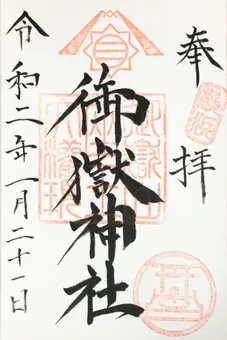 奉拝
御嶽神社
令和二年一月二十一日